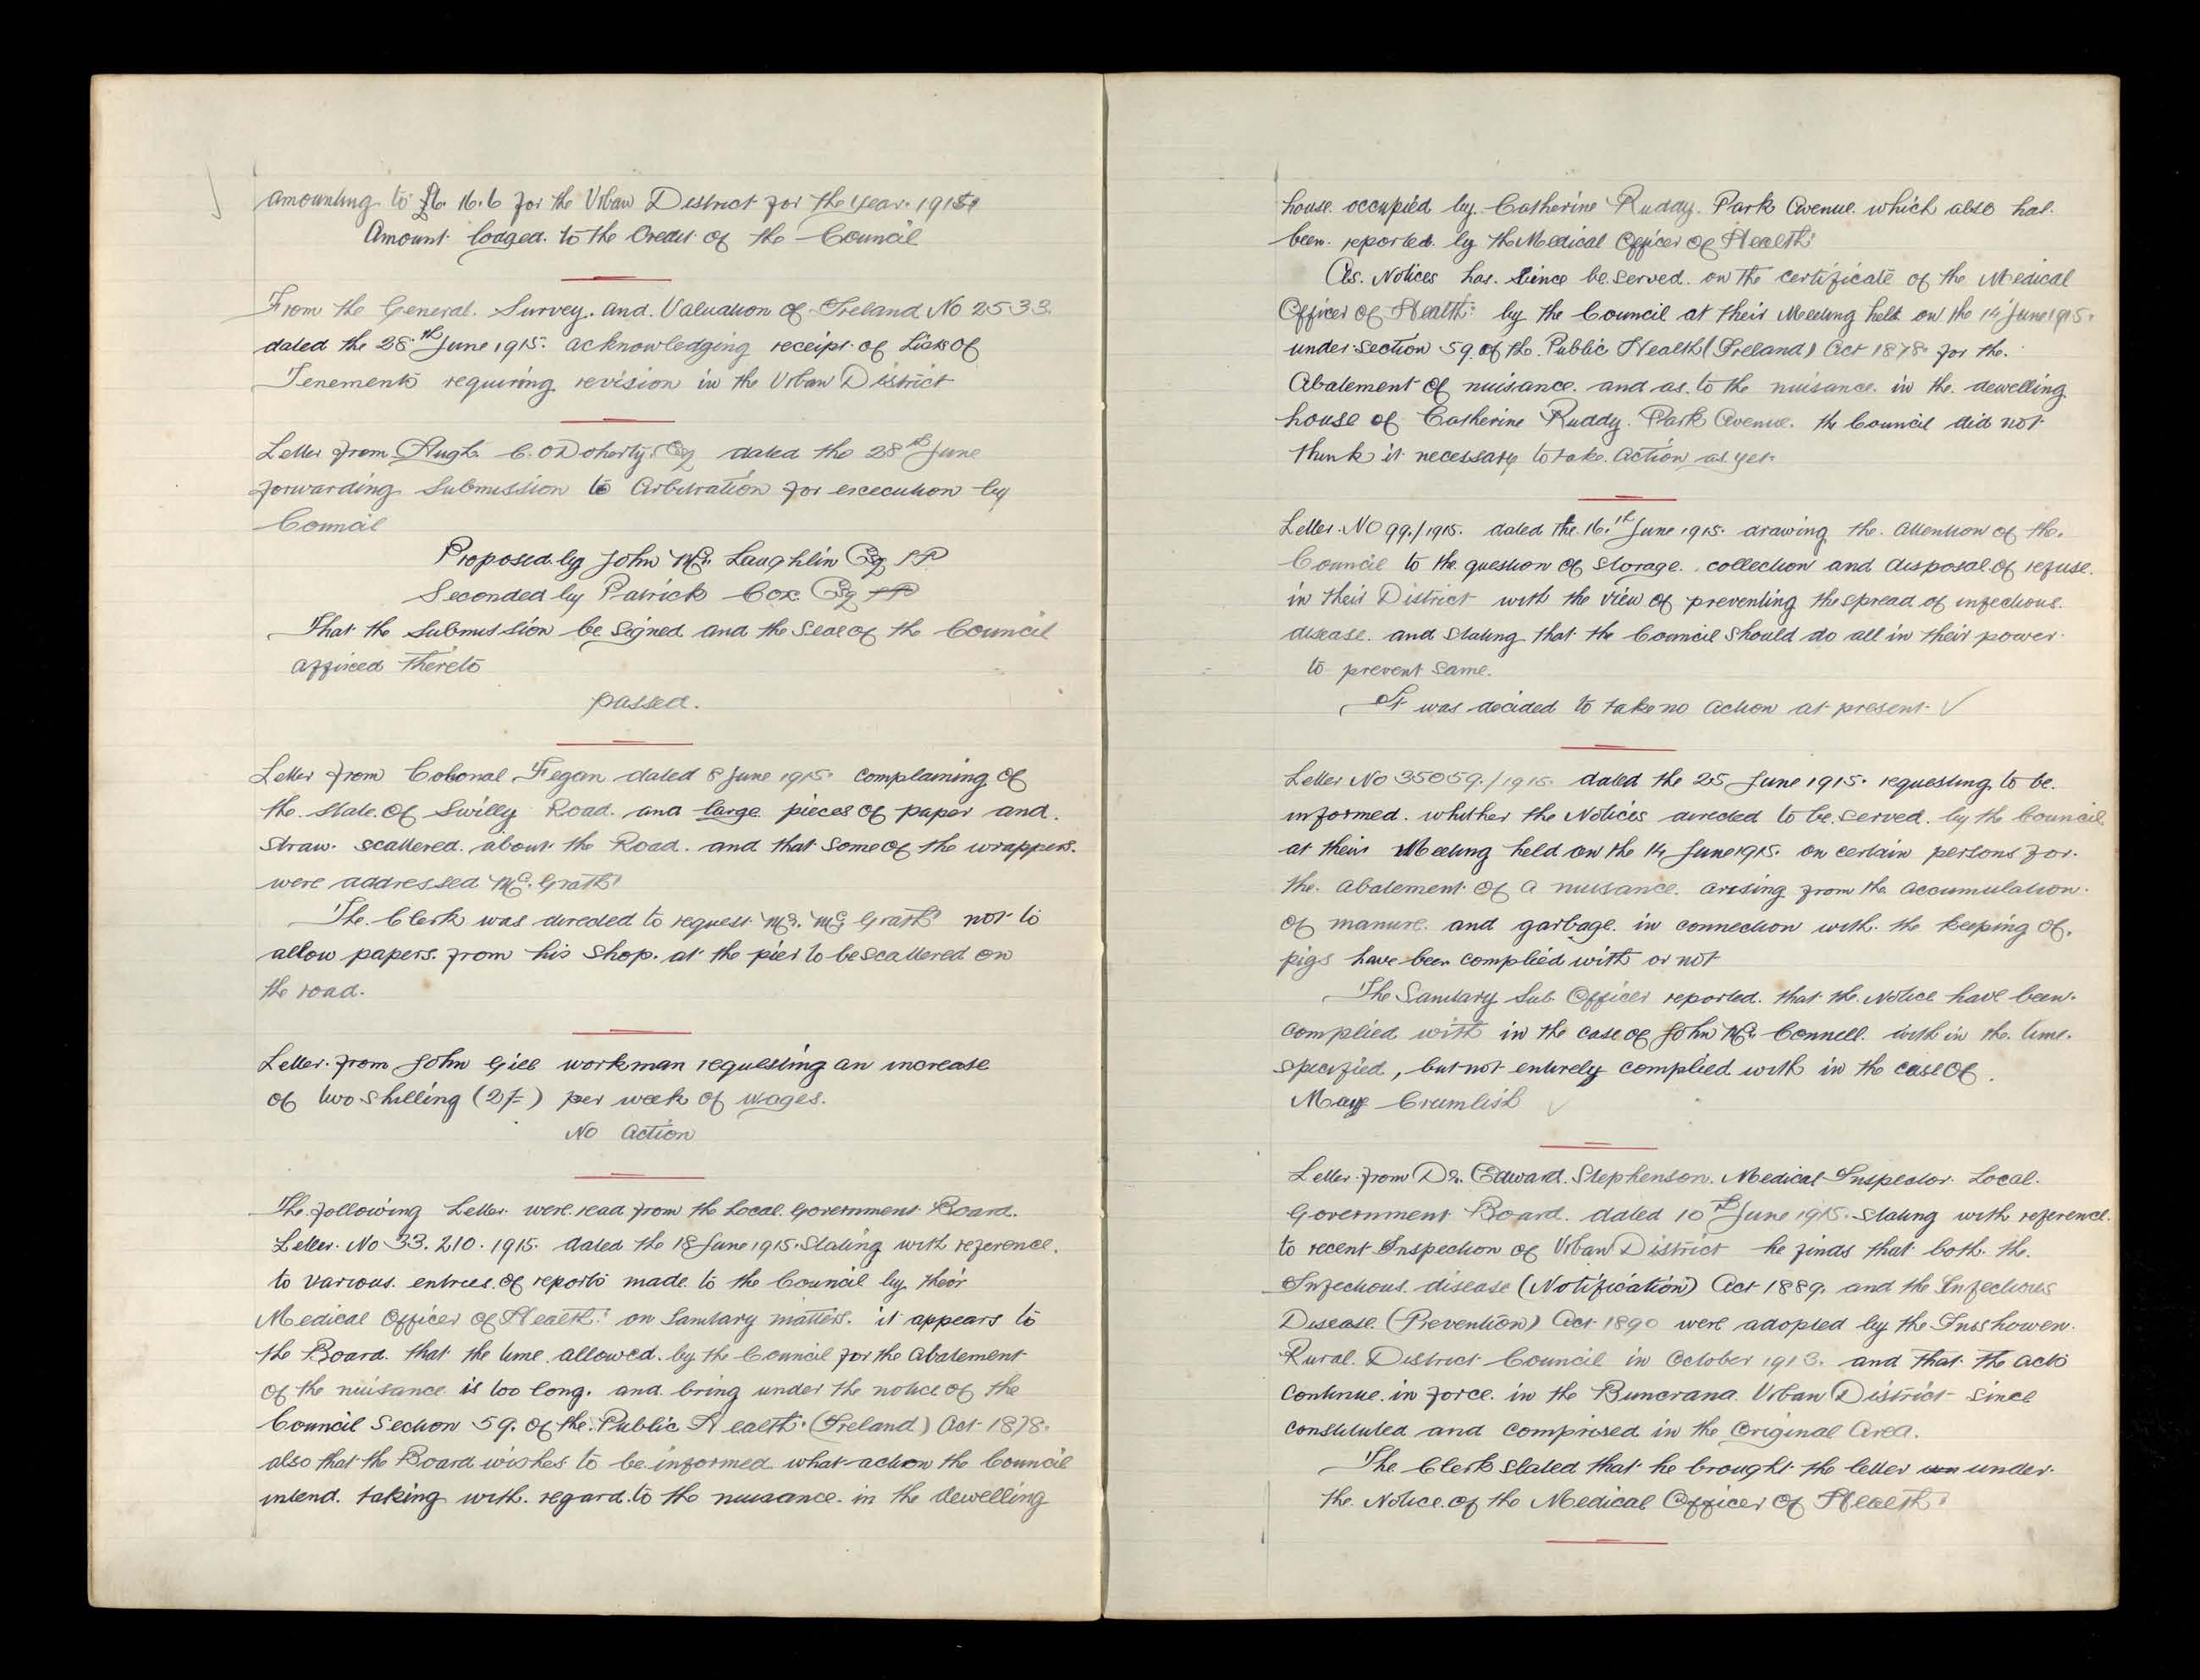 amounting to £6. 16. 6 for the Urban District for the year. 1915
Amount lodged. to the Credit of the Council
From the General. Survey. and. Valuation of Ireland No 2533.
dated the 28th June 1915. acknowledging receipt of Lists of
Tenements requiring revision in the Urban District
Letter from Hugh C. O Doherty Esq dated the 28th June
forwarding Submission to Arbitration for execution by
Council
Proposed by John Mc. Laughlin Esq JP
Seconded by Patrick Cox Esq JP
That the Submission be Signed and the Seal of the Council
affixed thereto
passed.
Letter from Colonal Fegan dated 8 June 1915. complaining of
the state of Swilly Road. and large pieces of paper and.
straw. scattered. about the Road. and that some of the wrappers.
were addressed Mc. Grath
The Clerk was directed to request Mr. Mc Grath not to
allow papers. from his Shop. at the pier to be scattered on
the road.
Letter from John Gill workman requesting an increase
of two shilling (2/-) per week of wages.
No Action
The following Letter were read from the Local Government Board.
Letter. No 33. 210. 1915. dated the 18 June 1915. Stating with reference.
to various. entries. of reports made to the Council by their
Medical Officer of Health. on Sanitary matters. it appears to
the Board. that the time allowed. by the Council for the Abatement
of the nuisance is too long. and bring under the notice of the
Council Section 59. of the Public Health. (Ireland) Act 1878.
also that the Board wishes to be informed what action the Council
intend. taking with. regard. to the nuisance in the dewelling
house occupied by Catherine Ruddy. Park Avenue. which also has.
been. reported. by the Medical Officer of Health.
As. Notices has. Since be served. on the certificate of the Medical
Officer of Health. by the Council at their Meeting held on the 14 June 1915.
under Section 59. of the Public Health (Ireland) Act 1878. for the.
Abatement of nuisance. and as. to the nuisance in the. dewelling
house of Catherine Ruddy. Park Avenue. the Council did not
think it necessary to take. action as. yet.
Letter. No 99./1915. dated the 16.th June 1915. drawing the. attention of the.
Council to the question of Storage. collection and disposal of refuse.
in their District with the view of preventing the spread of infectious.
disease. and stating that the Council should do all in their power.
to prevent same.
It was decided to take no action at present ✓
Letter No 35059./1915. dated the 25 June 1915. requesting to be.
informed. whither the Notices directed to be served. by the Council
at their Meeting held on the 14 June 1915. on certain persons for.
the. abatement of a nuisance. arising from the accumulation.
of manure. and garbage. in connection with. the keeping of.
pigs have been complied with or not
The Sanitary Sub. Officer reported. that the Notice have been.
complied with in the case of John Mc. Connell. with in the. time.
specified, but not entirely complied with in the case of.
Mary Crumlish ✓
Letter from Dr. Edward. Stephenson. Medical Inspector Local.
Government Board. dated 10th June 1915. Stating with reference.
to recent Inspection of Urban District he finds that both. the.
Infectious. disease (Notification) Act 1889. and the Infectious
Disease. (Prevention) Act 1890 were adopted by the Inishowen.
Rural. District Council in October 1913. and that the acts
Continue. in force. in the Buncrana Urban District Since
constituted and comprised in the Original Area.
The Clerk stated that he brought the letter under.
the Notice of the Medical Officer of Health.